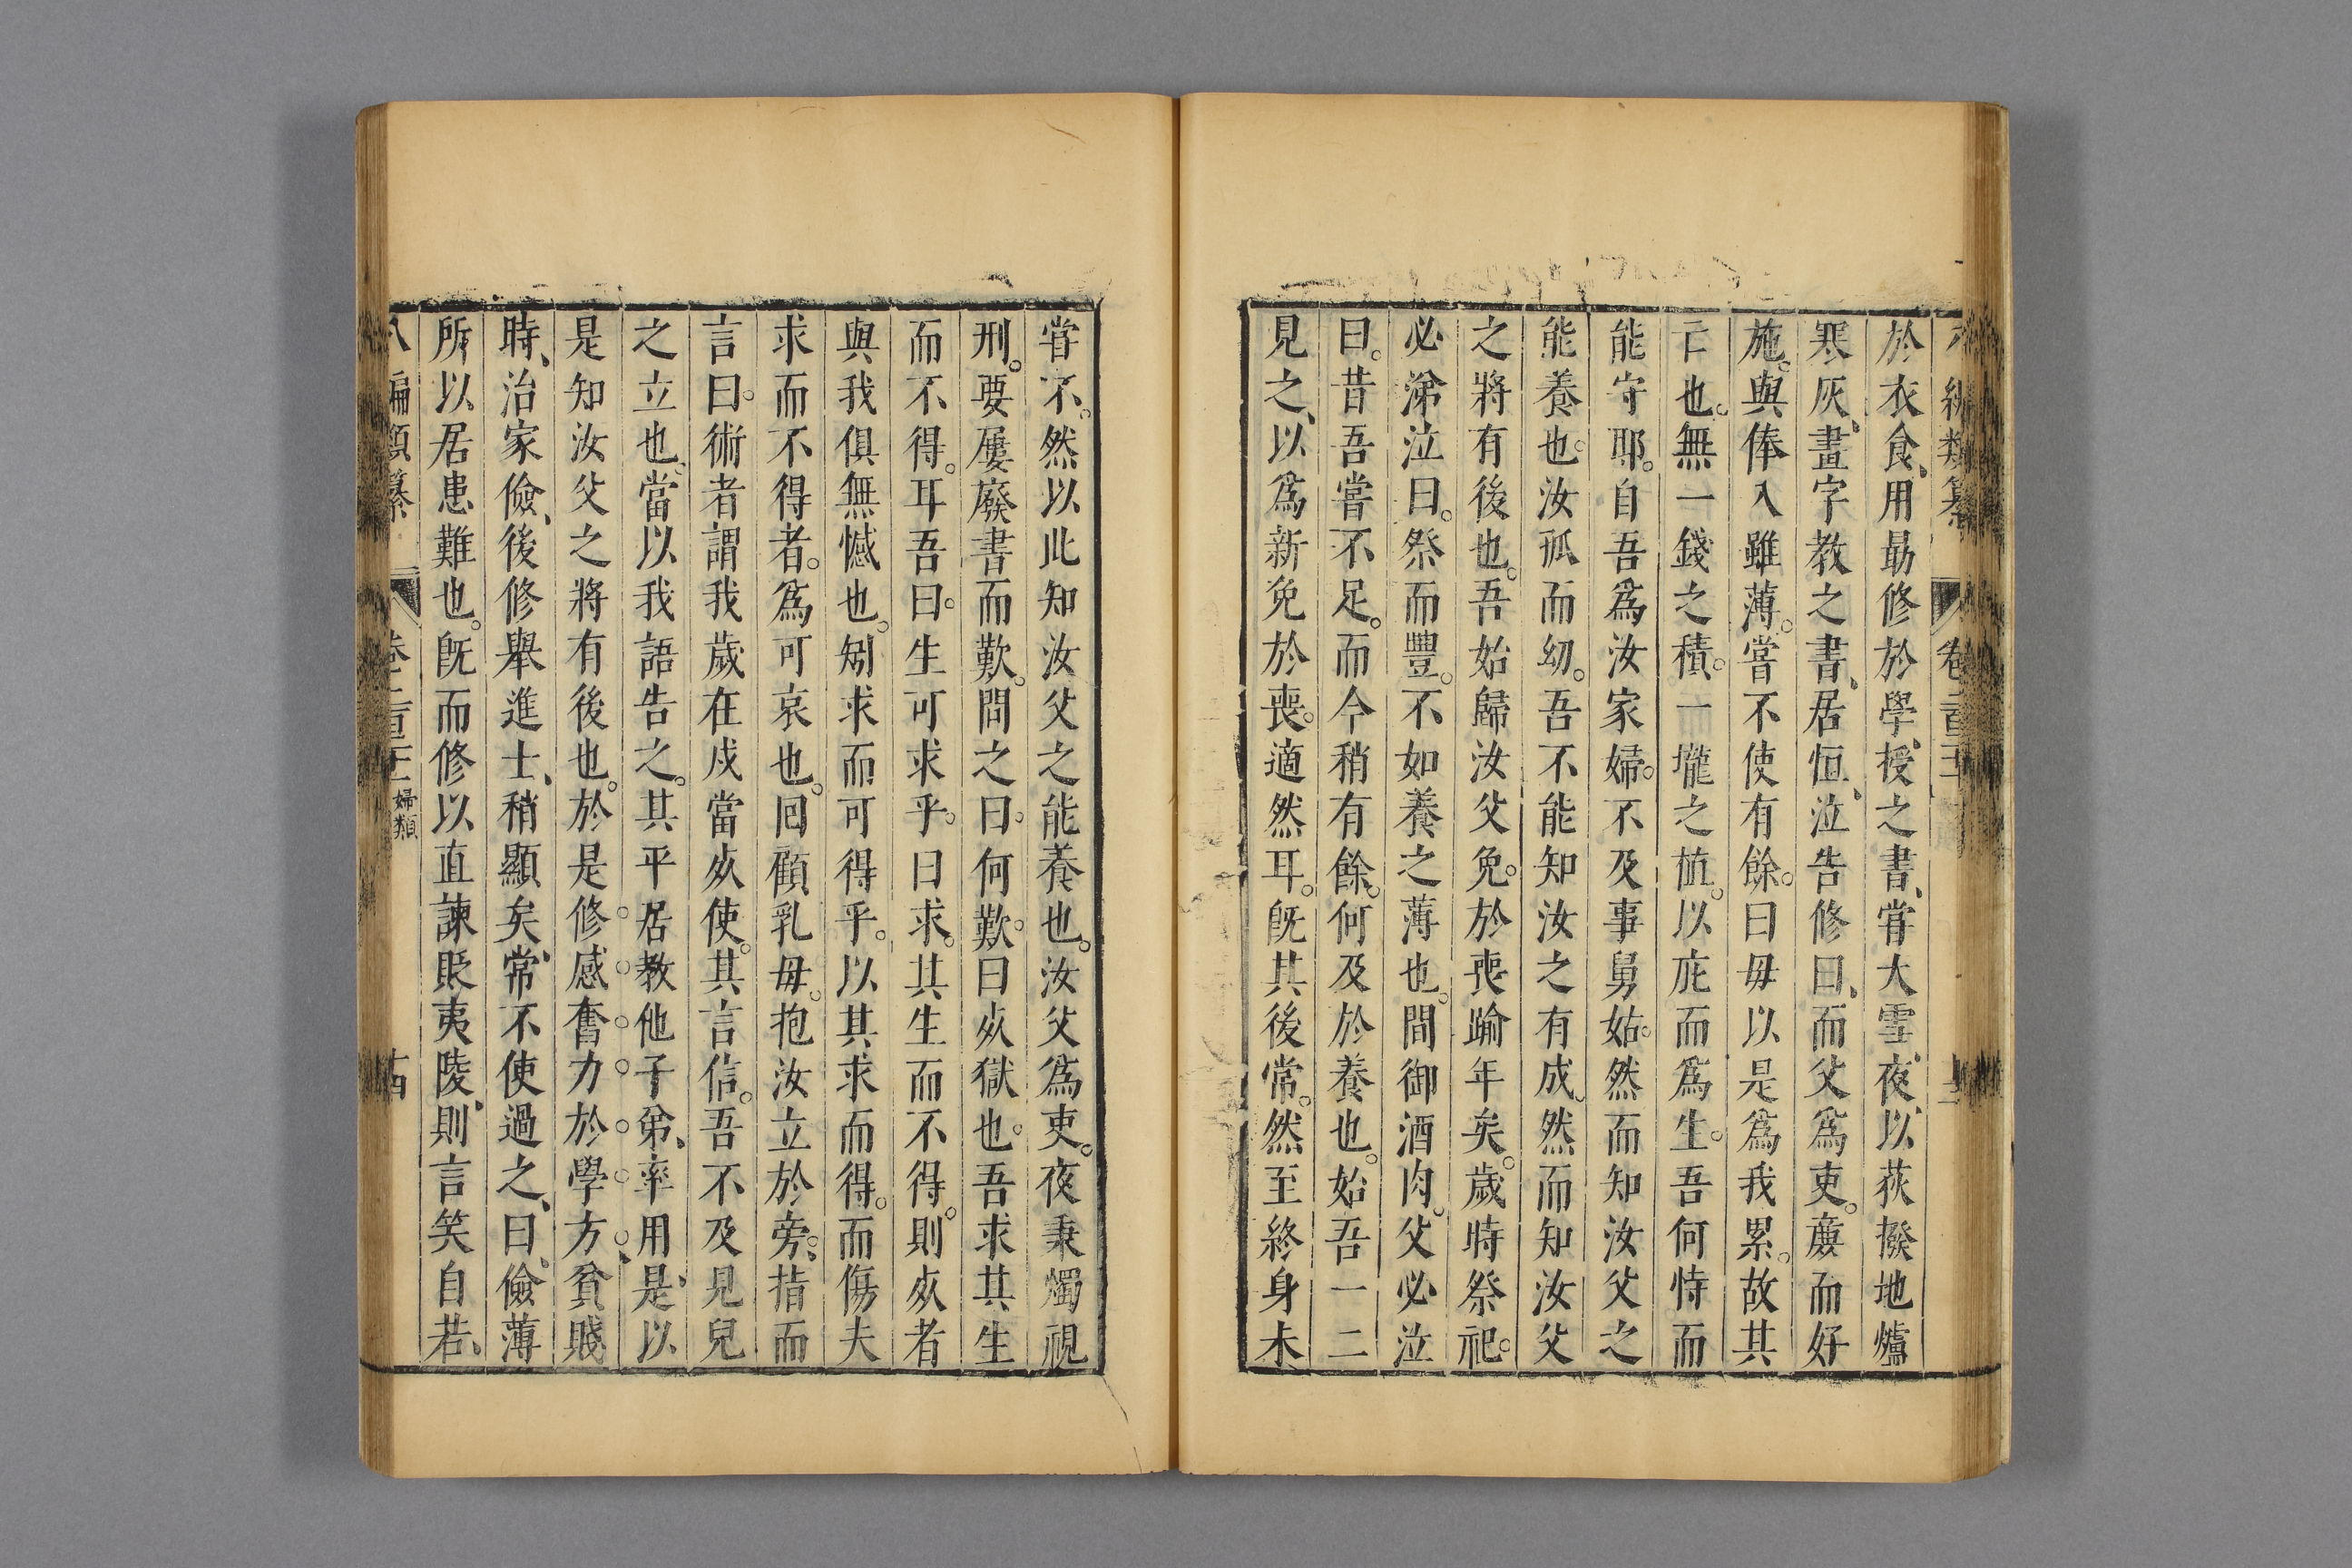 於衣食用勗修於學授之書甞大雪夜以荻撥地爐
寒灰畫字教之書居恒泣告修曰而父爲吏廉而好
施與俸入雖薄嘗不使有餘曰毋以是爲我累故其
亡也無一錢之積一壠之植以庇而爲生吾何恃而
能守耶自吾爲汝家婦不及事舅姑然而知汝父之
能養也汝孤而幼吾不能知汝之有成然而知汝父
之將有後也吾始歸汝父免於喪踰年矣歲時祭祀
必涕泣曰祭而豐不如養之薄也間御酒肉父必泣
曰昔吾嘗不足而今稍有餘何及於養也始吾一二
見之以爲新免於喪適然耳旣其後常然至終身未
甞不然以此知汝父之能養也汝父爲吏夜秉燭視
刑要屢廢書而歎問之曰何歎曰死獄也吾求其生
而不得耳吾曰生可求乎曰求其生而不得則死者
與我俱無憾也矧求而可得乎以其求而得而傷夫
求而不得者爲可哀也囘顧乳毋抱汝立於旁指而
言曰術者謂我歲在戍當死使其言信吾不及見兒
之立也當以我語告之其平居教他子弟率用是以
是知汝父之將有後也於是修感奮力於學方貧賤
時治家儉後修舉進士稍顯矣常不使過之曰儉薄
所以居患難也旣而修以直諫貶夷陵則言笑自若
八編類纂 卷二百三 婦類 十四